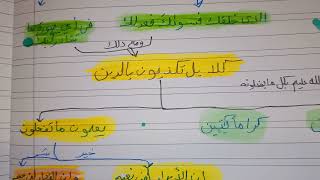 الذي خلقك فسواك فعدلك
في أي صورة
ومع ذلك
كلا بل تكذبون بالدين
الله عليم بكل ما يفعلونه
كراماً كاتبين
يعلمون ما تفعلون
خير
شر
إن الأبرار لفي نعيم